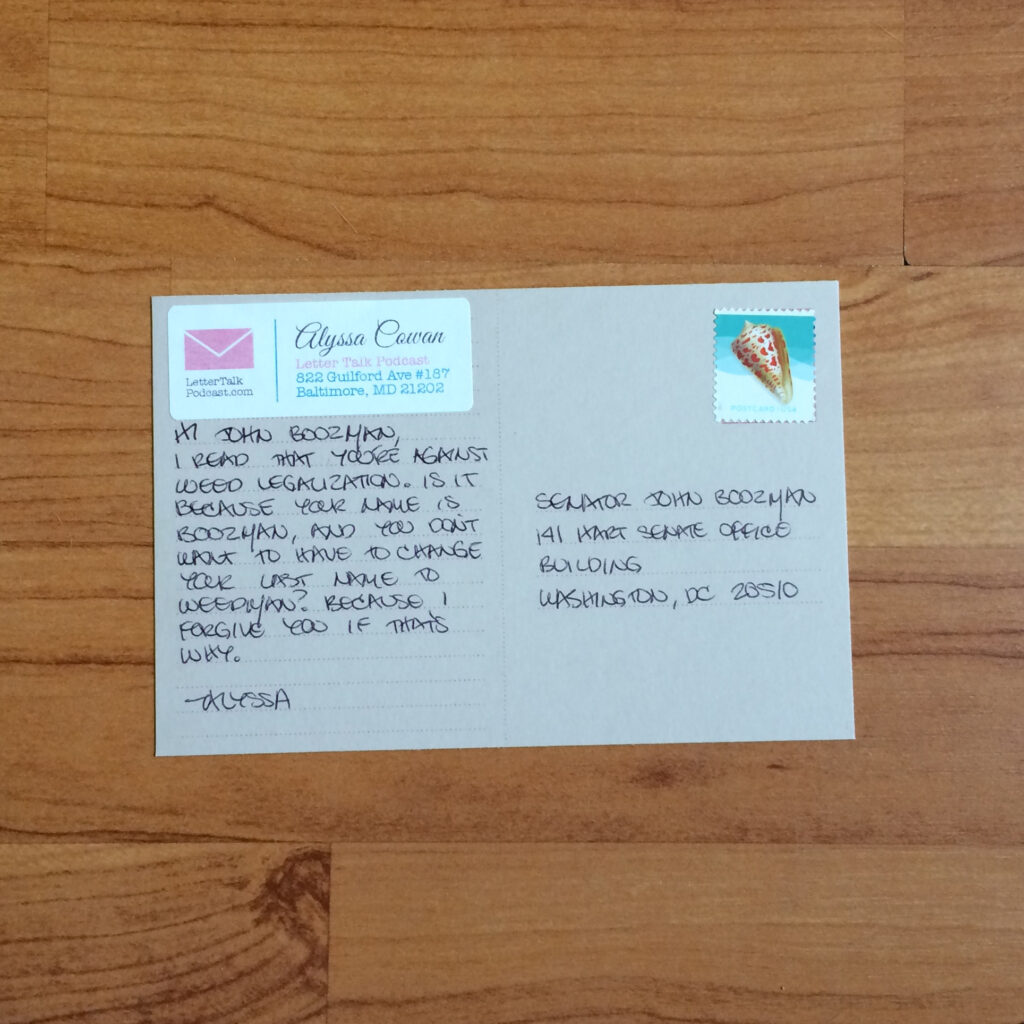 Alyssa Cowan
Letter Talk Podcast
822 Guilford Ave #187
Baltimore, MD 21202
LetterTalk
Podcast.com
HI JOHN BOOZMAN,
I READ THAT YOU'RE AGAINST
WEED LEGALIZATION. IS IT
BECAUSE YOUR NAME IS
BOOZMAN, AND YOU DON'T
WANT TO HAVE TO CHANGE
YOUR LAST NAME TO
WEEDMAN? BECAUSE I
FORGIVE YOU IF THAT'S
WHY.
-ALYSSA
POSTCARD USA
SENATOR JOHN BOOZMAN
141 HART SENATE OFFICE
BUILDING
WASHINGTON, DC 20510